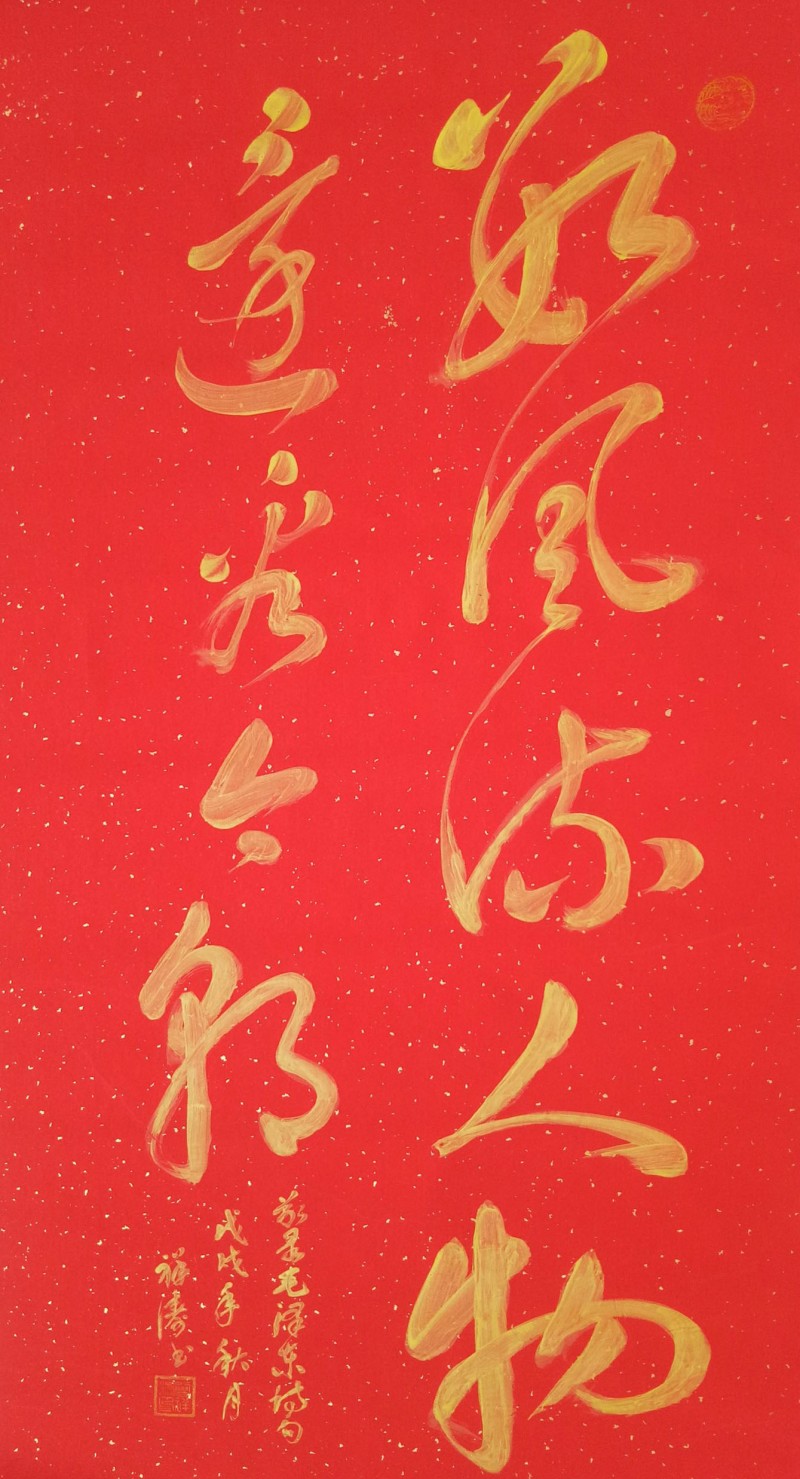 数风流人物
还看今朝
敬录毛泽东诗句
戊戌年秋月
祥涛书